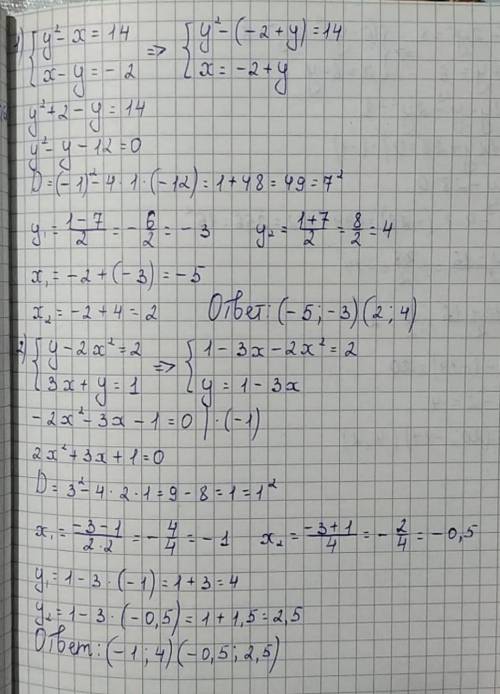 1) { y² - x = 14 => { y² - (-2 + y) = 14
x - y = -2 x = -2 + y
y² + 2 - y = 14
y² - y - 12 = 0
D = (-1)² - 4 · 1 · (-12) = 1 + 48 = 49 = 7²
y₁ = (1 - 7)/2 = - 6/2 = -3 y₂ = (1 + 7)/2 = 8/2 = 4
x₁ = -2 + (-3) = -5
x₂ = -2 + 4 = 2 Ответ: (-5; -3) (2; 4)
2) { y - 2x² = 2 => { 1 - 3x - 2x² = 2
3x + y = 1 y = 1 - 3x
-2x² - 3x - 1 = 0 | · (-1)
2x² + 3x + 1 = 0
D = 3² - 4 · 2 · 1 = 9 - 8 = 1 = 1²
x₁ = (-3 - 1)/(2 · 2) = - 4/4 = -1 x₂ = (-3 + 1)/4 = - 2/4 = -0,5
y₁ = 1 - 3 · (-1) = 1 + 3 = 4
y₂ = 1 - 3 · (-0,5) = 1 + 1,5 = 2,5
Ответ: (-1; 4) (-0,5; 2,5)